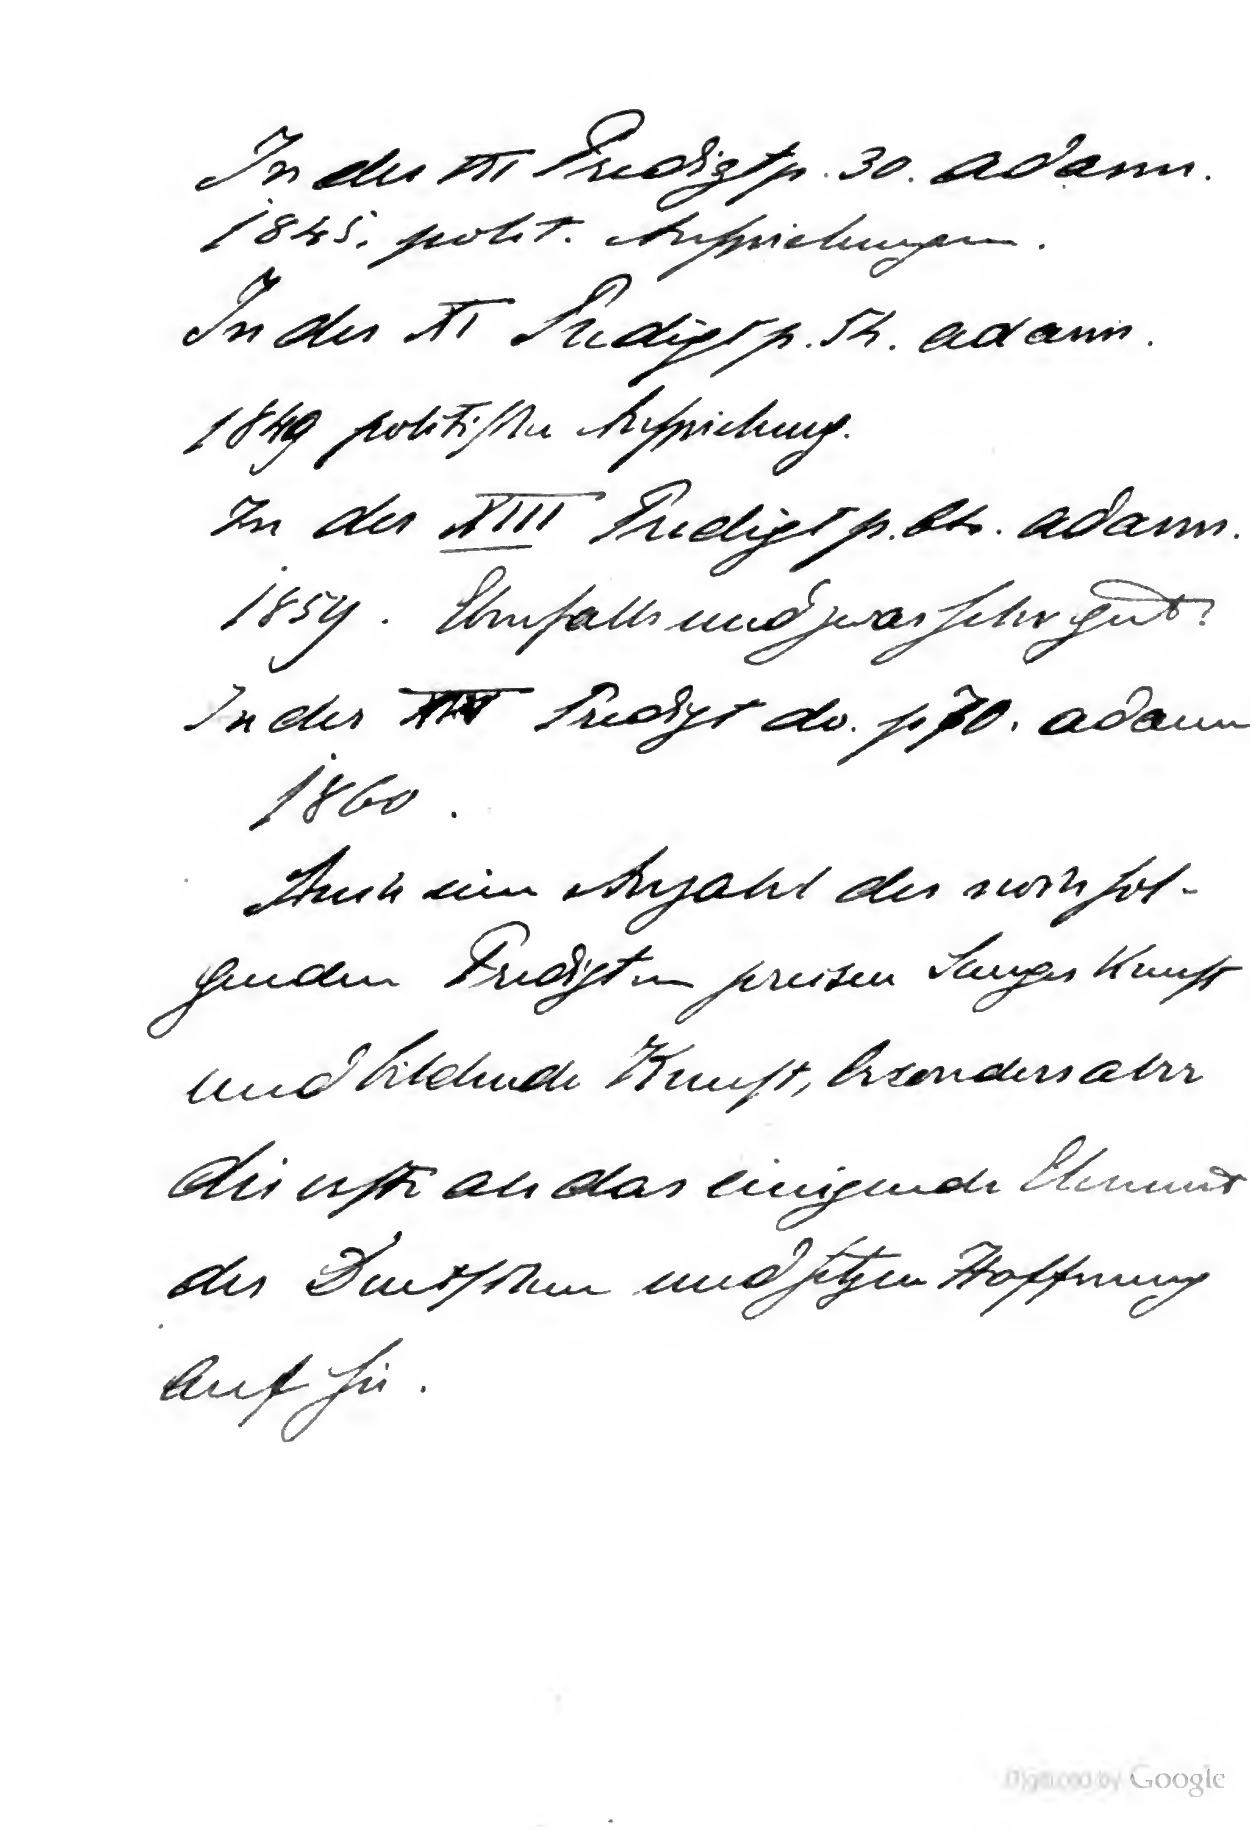 In der VII Predigt p. 30. ad ann.
1845. polit. Anspielungen.
In der XI Predigt p. 54. ad ann.
1849 politische Anspielung.
In der XIII Predigt p. 64. ad ann.
1859. Ebenfalls und zwar sehr gut!
In der Predigt do. p 70. ad ann
1860.
Auch eine Anzahl der noch fol-
genden Predigten preisen Sanges Kunst
und bildende Kunst, besonders aber
die erste als das einigende Element
der Deutschen und setzen Hoffnung
auf sie.
Digitized by Google